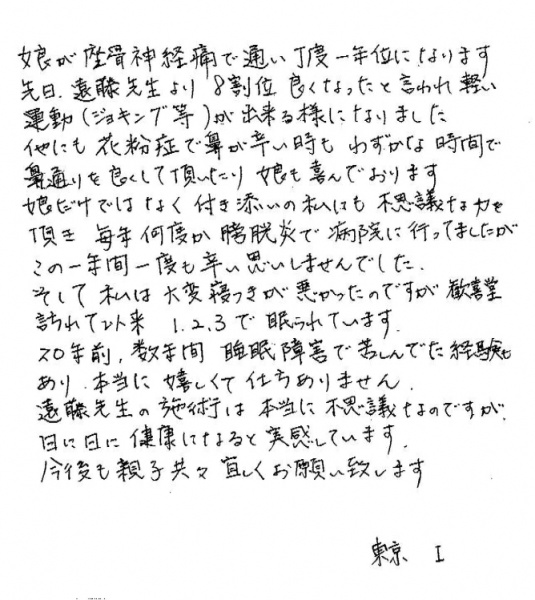 娘が座骨神経痛で通い丁度一年位になります
先日、遠藤先生より8割位良くなったと言われ軽い
運動(ジョキング等)が出来る様になりました
他にも花粉症で鼻が辛い時もわずかな時間で
鼻通りを良くして頂いたり娘も喜んでおります
娘だけではなく付き添いの私にも不思議な力を
頂き毎年何度か膀胱炎で病院に行ってましたが
この一年間一度も辛い思いしませんでした.
そして私は大変寝つきが悪かったのですが歓喜堂
訪れて以来1.2.3で眠られています.
20年前,数年間睡眠障害で苦しんでた経験も
あり.本当に嬉しくて仕方ありません.
遠藤先生の施術は本当に不思議なのですが、
日に日に健康になると実感しています.
今後も親子共々宜しくお願い致します
東京 I